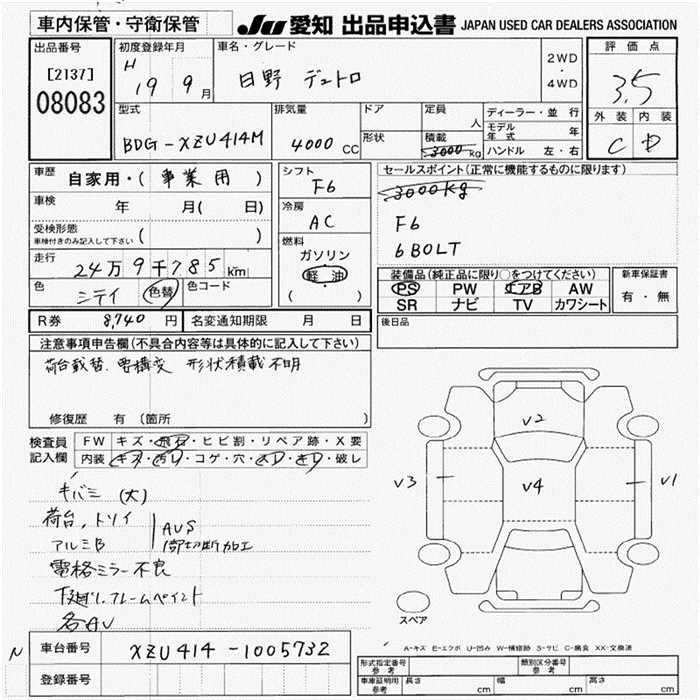 車内保管・守衛保管
JU 愛知 出品申込書 JAPAN USED CAR DEALERS ASSOCIATION
出品番号
[2137]
08083
初度登録年月
H 19 9月
車名・グレード
日野 デュトロ
2WD
・
4WD
評価点
3.5
外装 内装
C D
型式
BDG-XZU414M
排気量
4000 CC
ドア
形状
定員
人
積載
3000 kg
ディーラー・並行
モデル年式 年
ハンドル 左・右
車歴
自家用・( 事業用 )
車検 年 月( 日)
受検形態
車検付きのみ記入して下さい ( )
走行
24万9千785km
色
シテイ 色替
色コード
シフト
F6
冷房
AC
燃料
ガソリン
軽油
( )
セールスポイント(正常に機能するものに限ります)
3000kg
F6
6BOLT
装備品(純正品に限り○をつけてください)
PS PW エアB AW
SR ナビ TV カワシート
新車保証書
有・無
R券 8,740 円
名変通知期限 月 日
後日品
注意事項申告欄(不具合内容等は具体的に記入して下さい)
荷台載替、要構変 形状積載不明
修復歴 有 (箇所 )
検査員記入欄
FW キズ・飛石・ヒビ割・リペア跡・X要
内装 キズ・汚レ・コゲ・穴・スレ・キレ・破レ
キバミ (大)
荷台、トリイ
アルミB
AUS
1部切断加工
電格ミラー不良
下廻し、フレームペイント
各AU
V2
V3 V4 V1
スペア
A-キズ E-エクボ U-凹み W-補修跡 S-サビ C-腐食 XX-交換済
N
車台番号 XZU414-1005732
登録番号
形式指定番号 参考
類別区分番号 参考
車庫証明用 参考
長さ cm 幅 cm 高さ cm